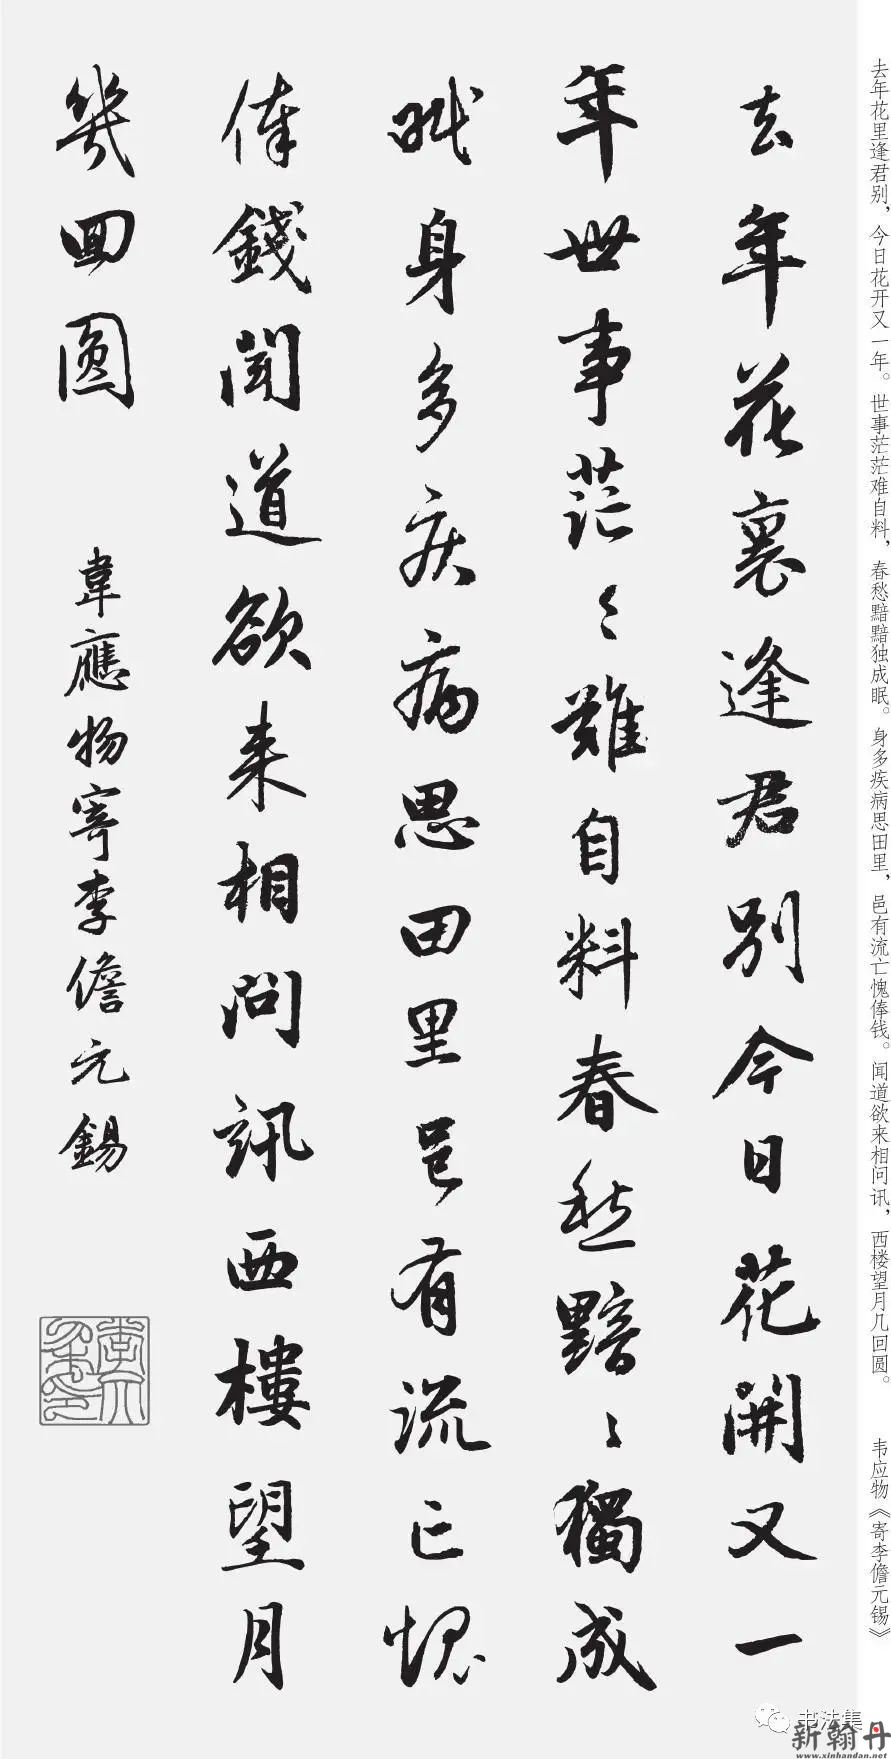 去年花里逢君别，今日花开又一年。世事茫茫难自料，春愁黯黯独成眠。身多疾病思田里，邑有流亡愧俸钱。闻道欲来相问讯，西楼望月几回圆。 韦应物《寄李儋元锡》
去年花裏逢君别今日花開又一
年世事茫〻難自料春愁黯〻獨成
眠身多疾病思田里邑有流亡愧
俸錢聞道欲来相問訊西樓望月
幾回圓
韋應物寄李儋元錫
书法集
新翰丹
www.xinhandan.net